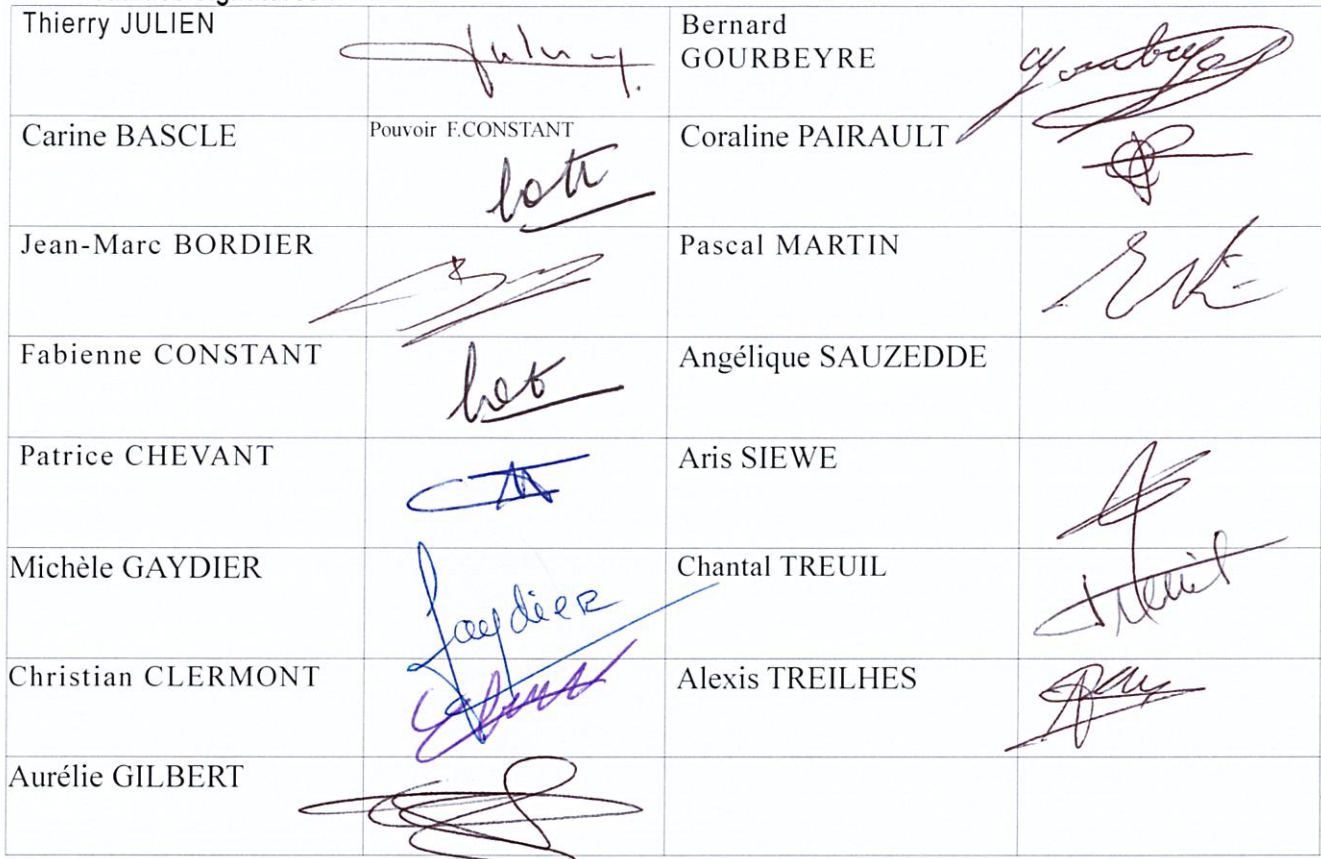 Thierry JULIEN
Bernard
GOURBEYRE
Carine BASCLE
Pouvoir F.CONSTANT
Coraline PAIRAULT
Jean-Marc BORDIER
Pascal MARTIN
Fabienne CONSTANT
Angélique SAUZEDDE
Patrice CHEVANT
Aris SIEWE
Michèle GAYDIER
Gaydier
Chantal TREUIL
Treuil
Christian CLERMONT
Alexis TREILHES
Aurélie GILBERT